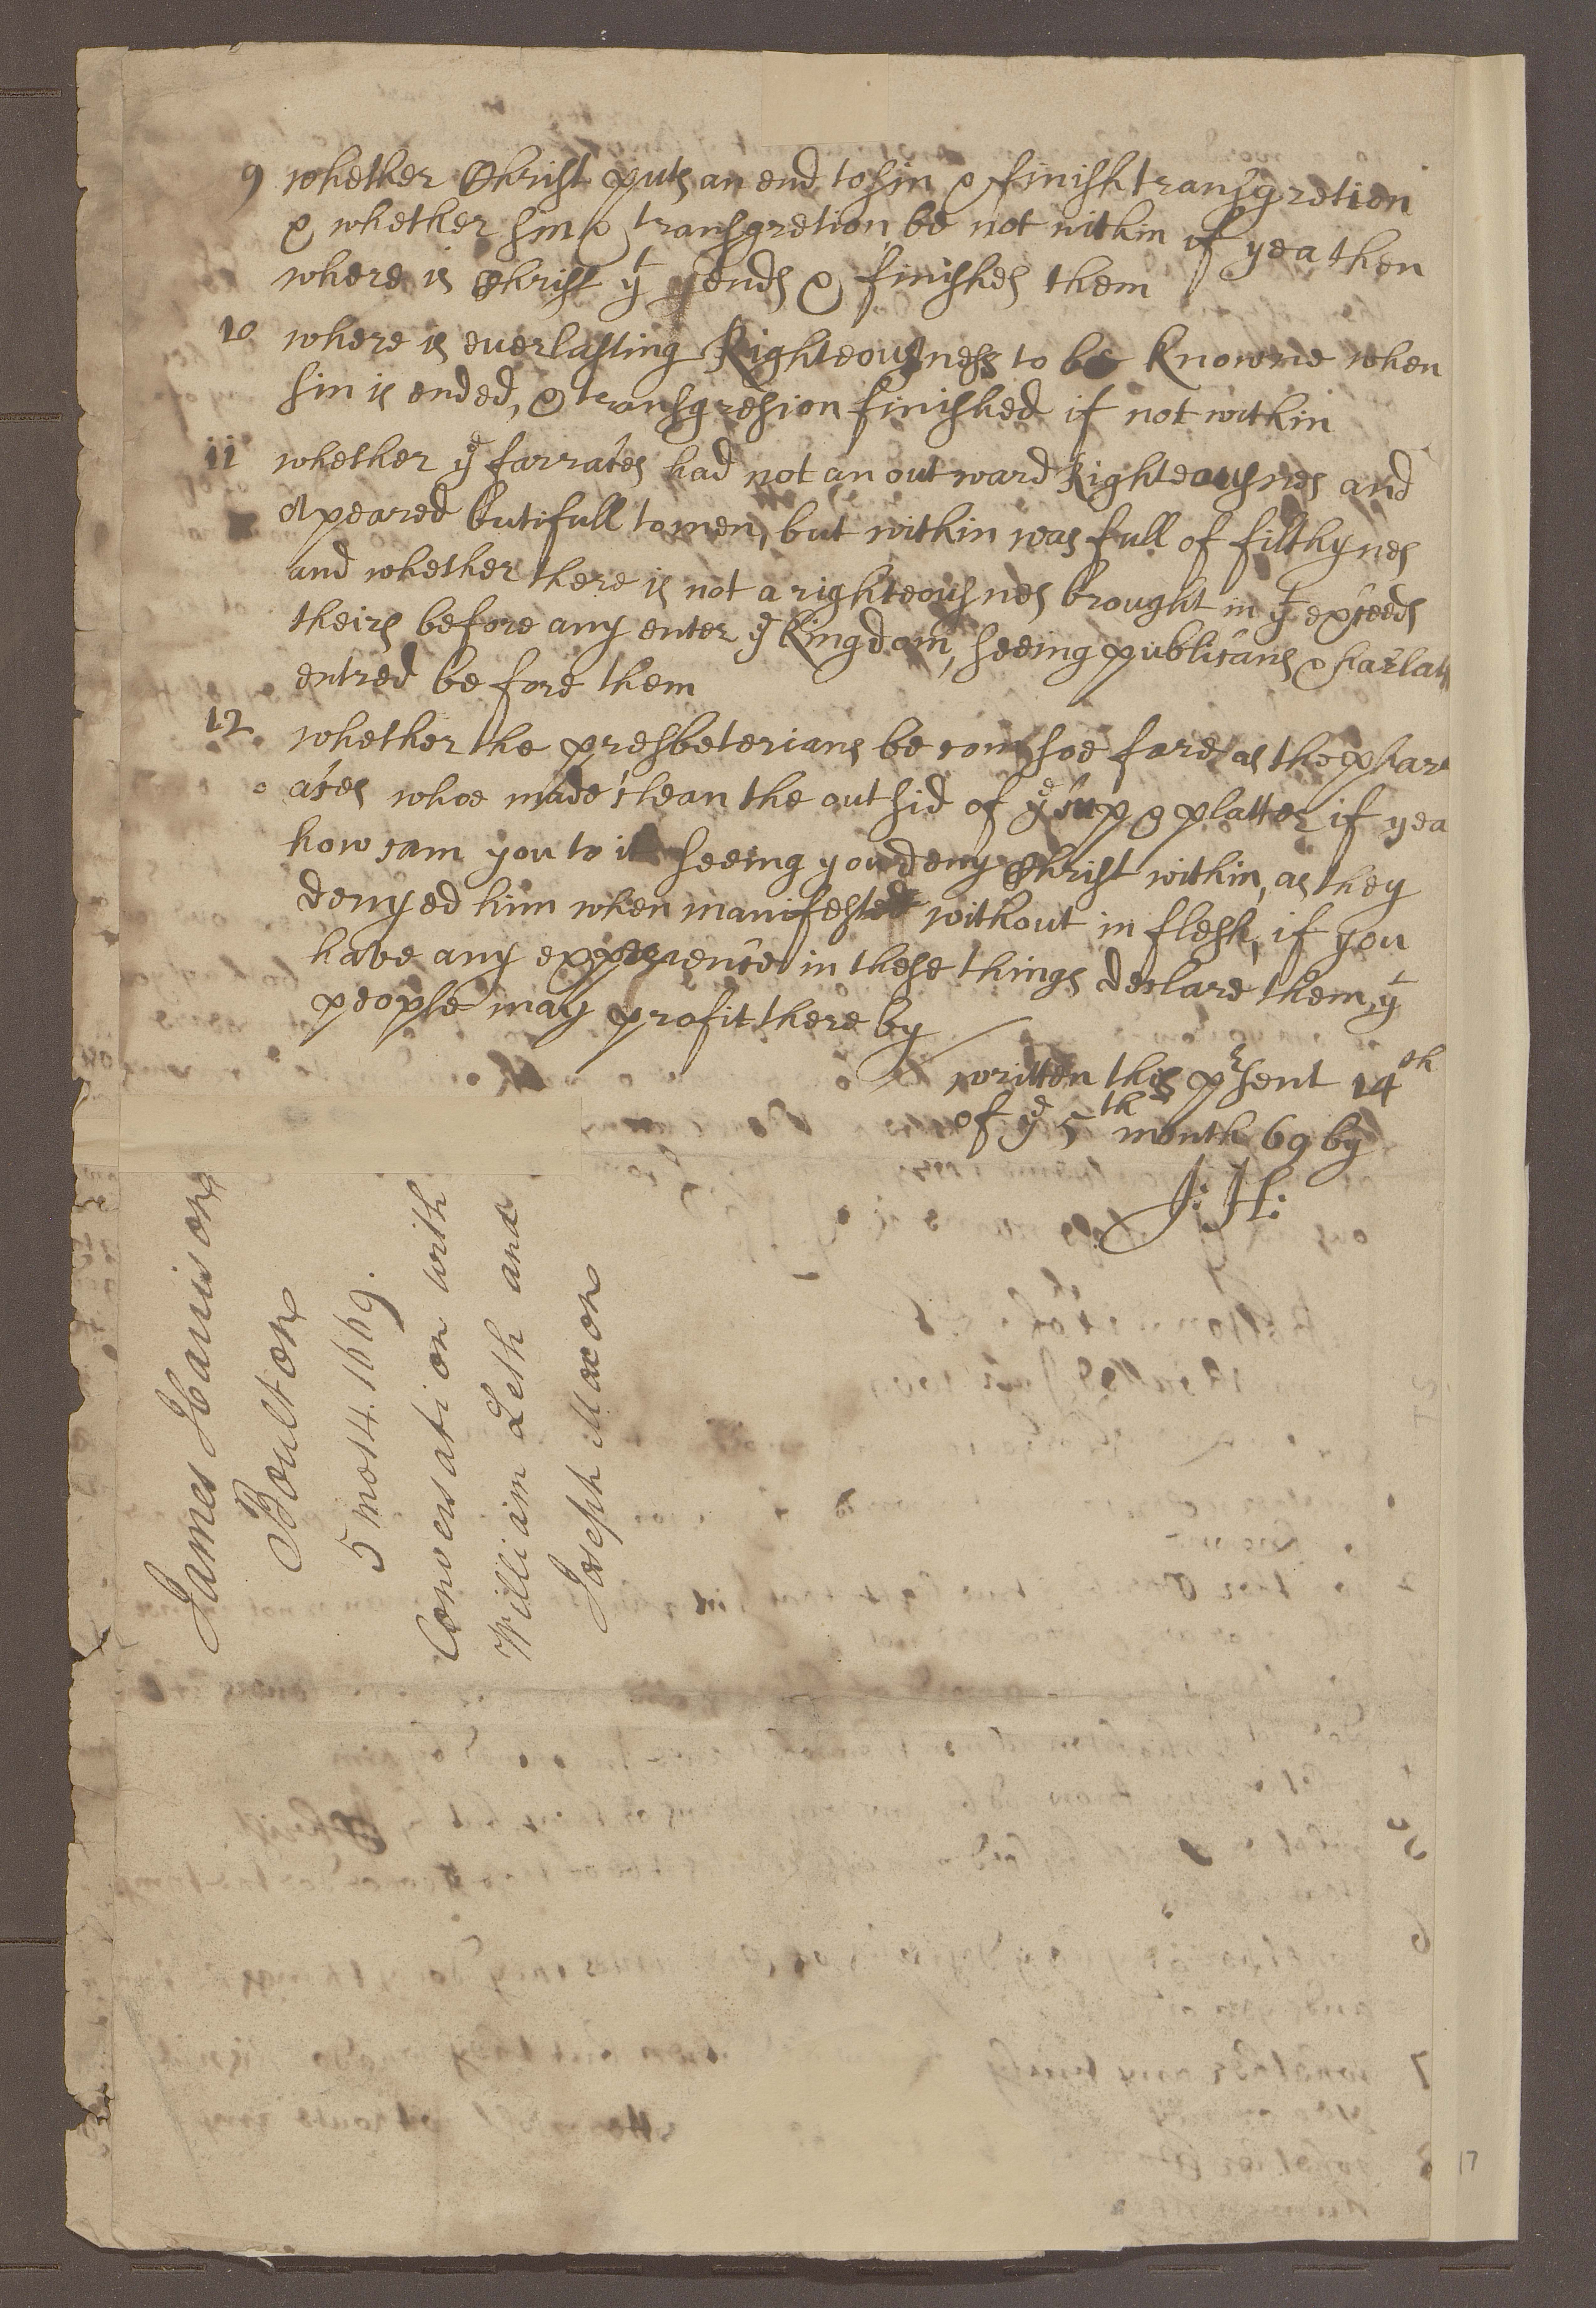 9 whether Christ puts an end to sin & finish transgretion
& whether sin & transgretion be not within if yea then
where is Christ yt ends & finishes them
10 where is everlasting Righteousness to be knowne when
sin is ended, & transgresion finished if not within
11 whether ye farraces had not an outward Righteousnes and
Apeared butifull to men, but within was full of filthynes
and whether there is not a righteousnes brought in yt exceeds
theirs before any enter ye Kingdom, seeing publicans & harlats
entred before them
12 whether the presbeterians be com soe fare as the phar
aces whoe made clean the outsid of ye cup & platter if yea
how cam you to it seeing you deny Christ within, as they
denyed him when manifested without in flesh, if you
have any experience in these things declare them yt
people may profit there by
written this prsent 14th
of ye 5th month 69 by
J: H:
James Harrison
Boulton
5 mo 14. 1669.
Conversation with
William Leth and
Joseph Maxon
17